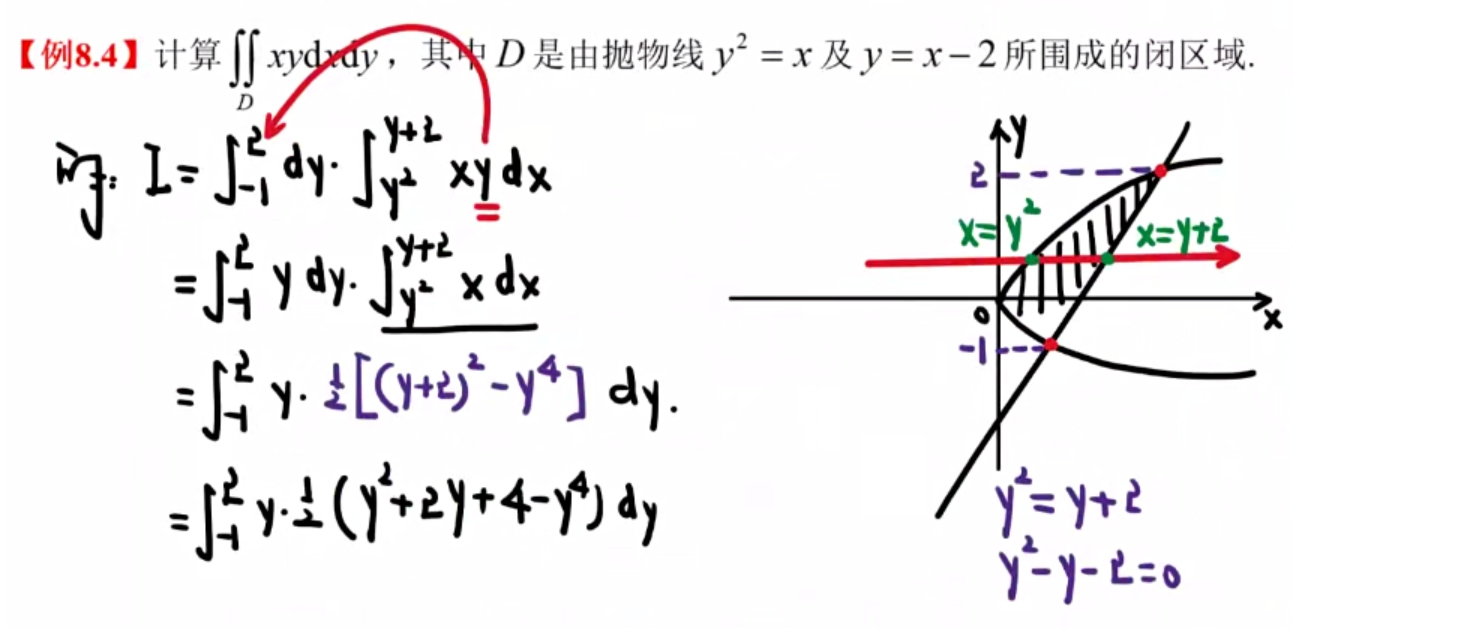 【例8.4】计算 ∬_D xydxdy，其中 D 是由抛物线 y² = x 及 y = x − 2 所围成的闭区域.
解: I = ∫_{-1}^{2} dy · ∫_{y²}^{y+2} xy dx
= ∫_{-1}^{2} y dy · ∫_{y²}^{y+2} x dx
= ∫_{-1}^{2} y · ½[(y+2)² − y⁴] dy.
= ∫_{-1}^{2} y · ½(y² + 2y + 4 − y⁴) dy
y
2
x=y²
x=y+2
0
x
-1
y² = y+2
y² − y − 2 = 0